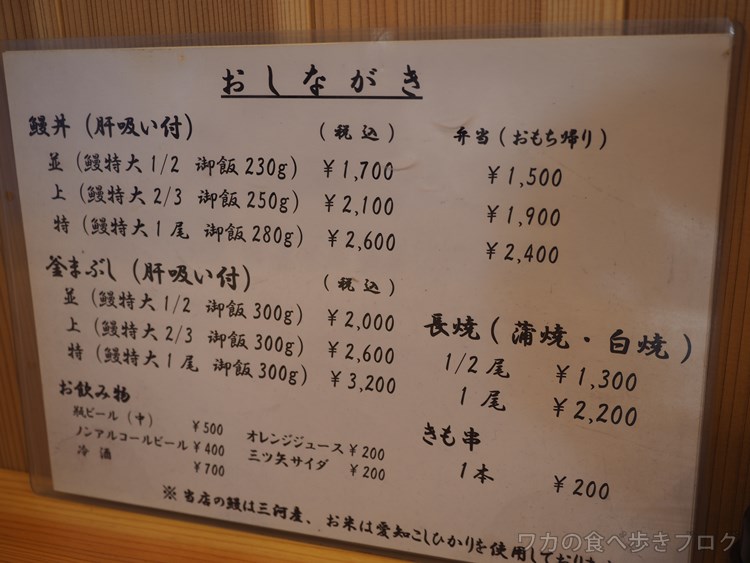 おしながき
鰻丼(肝吸い付) (税込) 弁当(おもち帰り)
並(鰻特大1/2 御飯230g) ¥1,700 ¥1,500
上(鰻特大2/3 御飯250g) ¥2,100 ¥1,900
特(鰻特大1尾 御飯280g) ¥2,600 ¥2,400
釜まぶし(肝吸い付) (税込)
並(鰻特大1/2 御飯300g) ¥2,000
上(鰻特大2/3 御飯300g) ¥2,600
特(鰻特大1尾 御飯300g) ¥3,200
長焼(蒲焼・白焼)
1/2尾 ¥1,300
1尾 ¥2,200
きも串
1本 ¥200
お飲み物
瓶ビール(中) ¥500
ノンアルコールビール ¥400
冷酒 ¥700
オレンジジュース ¥200
三ツ矢サイダ ¥200
※当店の鰻は三河産、お米は愛知こしひかりを使用しており
ワカの食べ歩きブログ